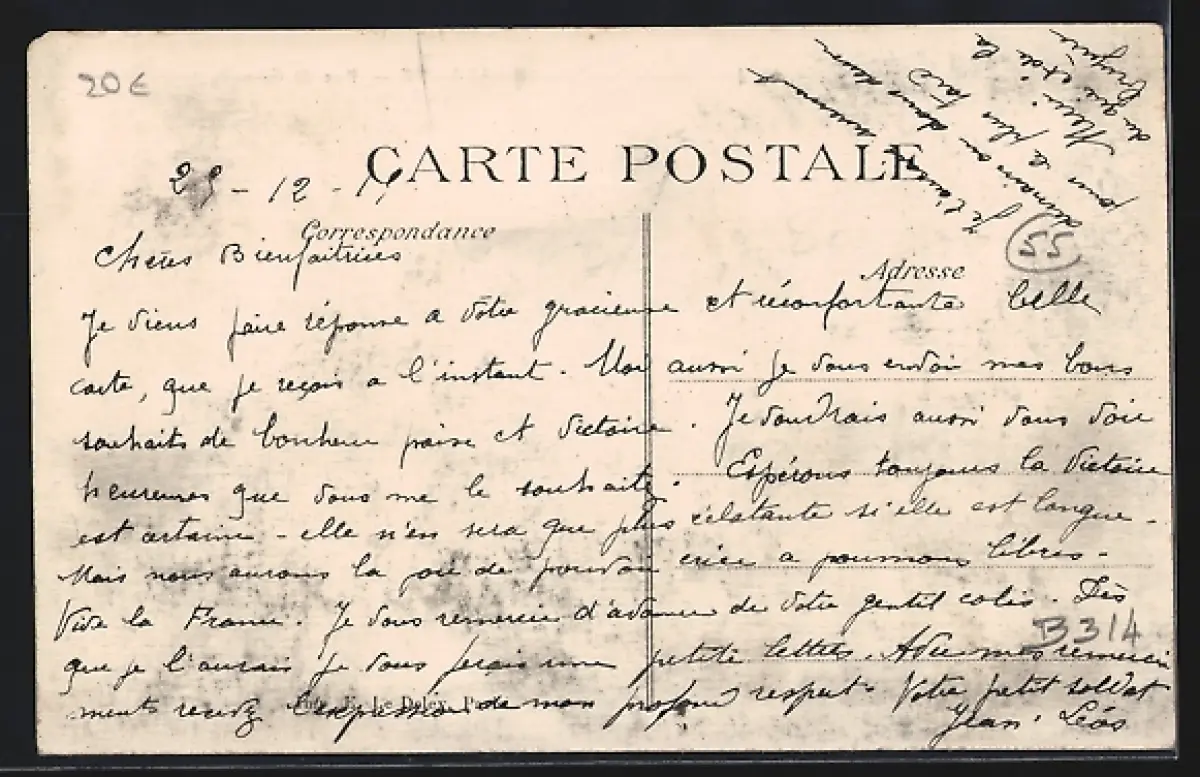 20€
CARTE POSTALE
29-12-14
Correspondance
Adresse
55
Chères Bienfaitrices
Je viens faire réponse a votre gracieuse et réconfortante belle
carte, que je reçois a l'instant. Moi aussi je vous envoie mes bons
souhaits de bonheur paix et Victoire. Je voudrais aussi vous voir
heureuses que vous me le souhaitez. Espérons toujours la Victoire
est certaine - elle n'en sera que plus éclatante si elle est longue.
Mais nous aurons la joie de pouvoir crier a poumons libres.
Vive la France. Je vous remercie d'avance de votre gentil colis. Dès
que je l'aurais je vous ferais une petite lettre. mes remercie
ments recevez l'expression de mon profond respect. Votre petit soldat
Jean
B314
Je l'aurai
demain ou
pour le plus tard